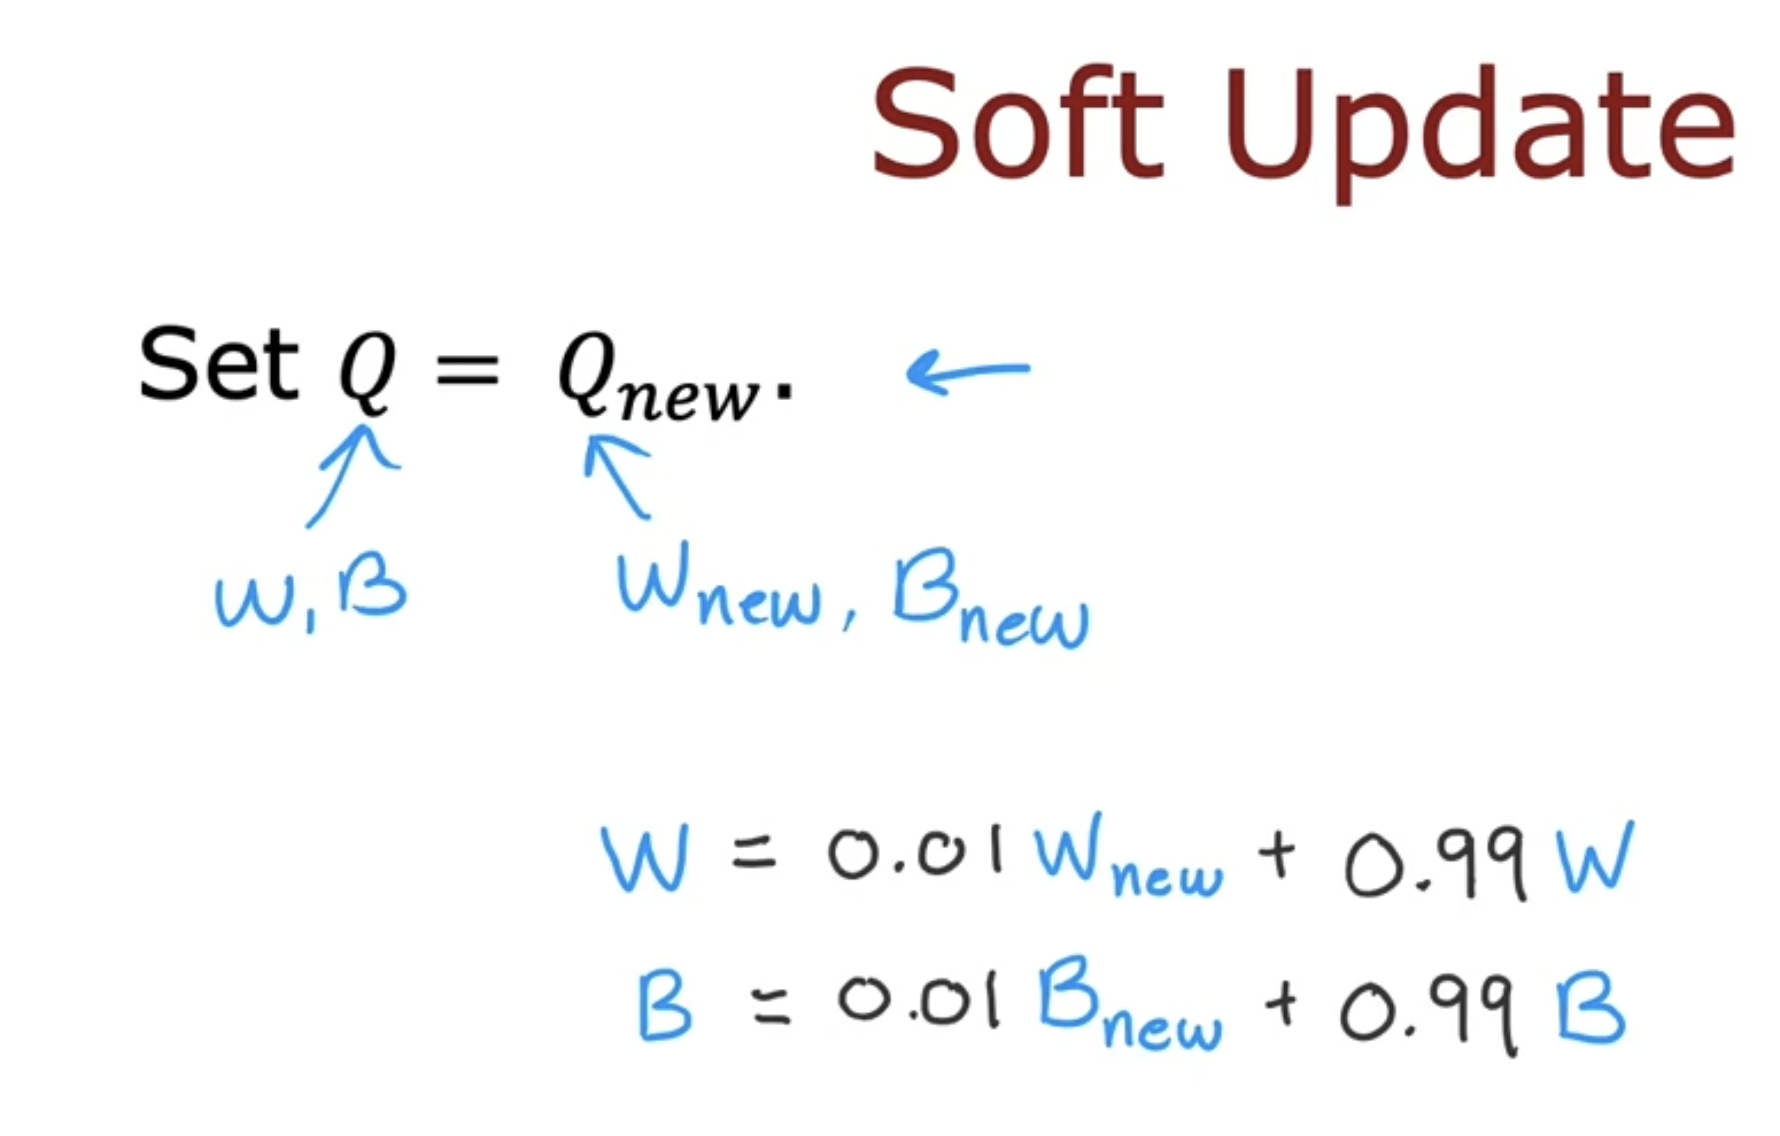 Soft Update
Set Q = Q_new.
W, B
W_new, B_new
W = 0.01 W_new + 0.99 W
B = 0.01 B_new + 0.99 B